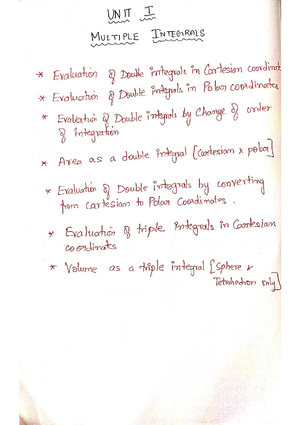 UNIT I
MULTIPLE INTEGRALS
* Evaluation of Double integrals in Cartesian coordinat
* Evaluation of Double integrals in Polar coordinates
* Evaluation of Double integrals by Change of order
of integration
* Area as a double integral [Cartesian & polar]
* Evaluation of Double integrals by converting
from cartesian to Polar Coordinates.
* Evaluation of triple integrals in Cartesian
coordinates
* Volume as a triple integral [Sphere &
Tetrahedron only]